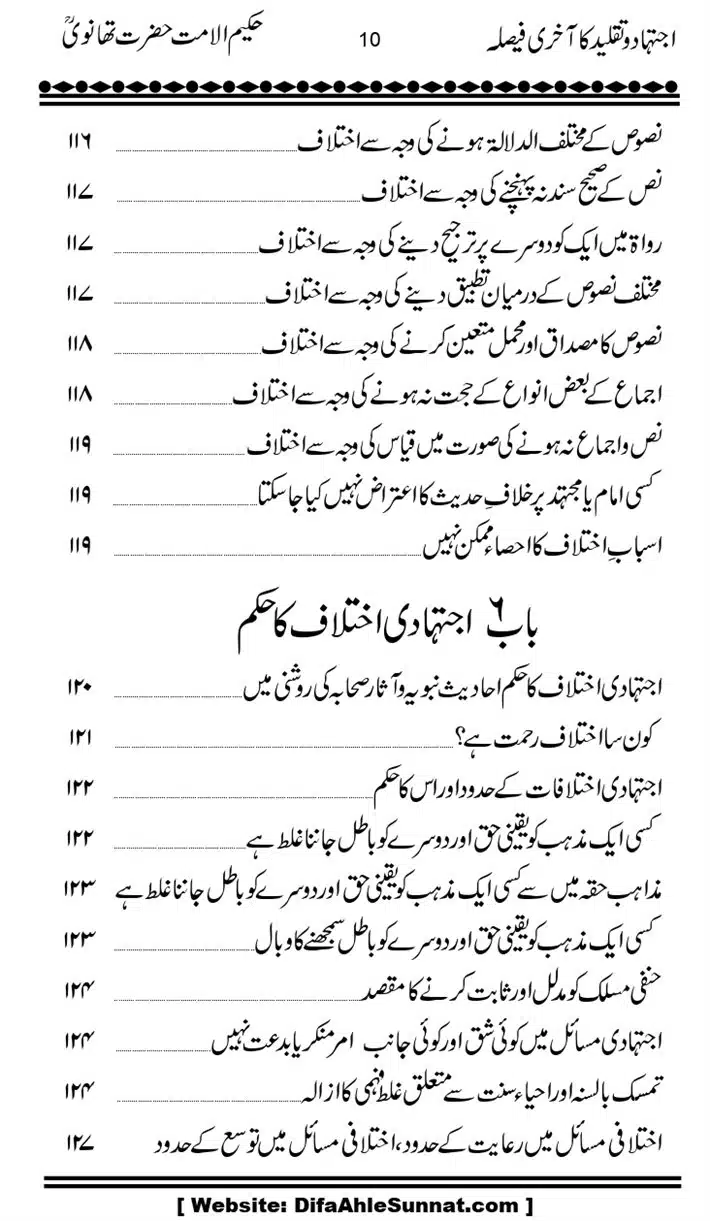 اجتہاد و تقلید کا آخری فیصلہ 10 حکیم الامت حضرت تھانویؒ
نصوص کے مختلف الدلالۃ ہونے کی وجہ سے اختلاف ۱۱۶
نص کے صحیح سند نہ پہنچنے کی وجہ سے اختلاف ۱۱۷
رواۃ میں ایک کو دوسرے پر ترجیح دینے کی وجہ سے اختلاف ۱۱۷
مختلف نصوص کے درمیان تطبیق دینے کی وجہ سے اختلاف ۱۱۷
نصوص کا مصداق اور محمل متعین کرنے کی وجہ سے اختلاف ۱۱۸
اجماع کے بعض انواع کے حجت نہ ہونے کی وجہ سے اختلاف ۱۱۸
نص و اجماع نہ ہونے کی صورت میں قیاس کی وجہ سے اختلاف ۱۱۹
کسی امام یا مجتہد پر خلافِ حدیث کا اعتراض نہیں کیا جا سکتا ۱۱۹
اسبابِ اختلاف کا احصاء ممکن نہیں ۱۱۹
باب ۶ اجتہادی اختلاف کا حکم
اجتہادی اختلاف کا حکم احادیث نبویہ و آثار صحابہ کی روشنی میں ۱۲۰
کون سا اختلاف رحمت ہے؟ ۱۲۱
اجتہادی اختلافات کے حدود اور اس کا حکم ۱۲۲
کسی ایک مذہب کو یقینی حق اور دوسرے کو باطل جاننا غلط ہے ۱۲۲
مذاہب حقہ میں سے کسی ایک مذہب کو یقینی حق اور دوسرے کو باطل جاننا غلط ہے ۱۲۳
کسی ایک مذہب کو یقینی حق اور دوسرے کو باطل سمجھنے کا وبال ۱۲۳
حنفی مسلک کو مدلل اور ثابت کرنے کا مقصد ۱۲۴
اجتہادی مسائل میں کوئی شق اور کوئی جانب امر منکر یا بدعت نہیں ۱۲۴
تمسک بالسنہ اور احیاء سنت سے متعلق غلط فہمی کا ازالہ ۱۲۴
اختلافی مسائل میں رعایت کے حدود، اختلافی مسائل میں توسع کے حدود ۱۲۷
[ Website: DifaAhleSunnat.com ]